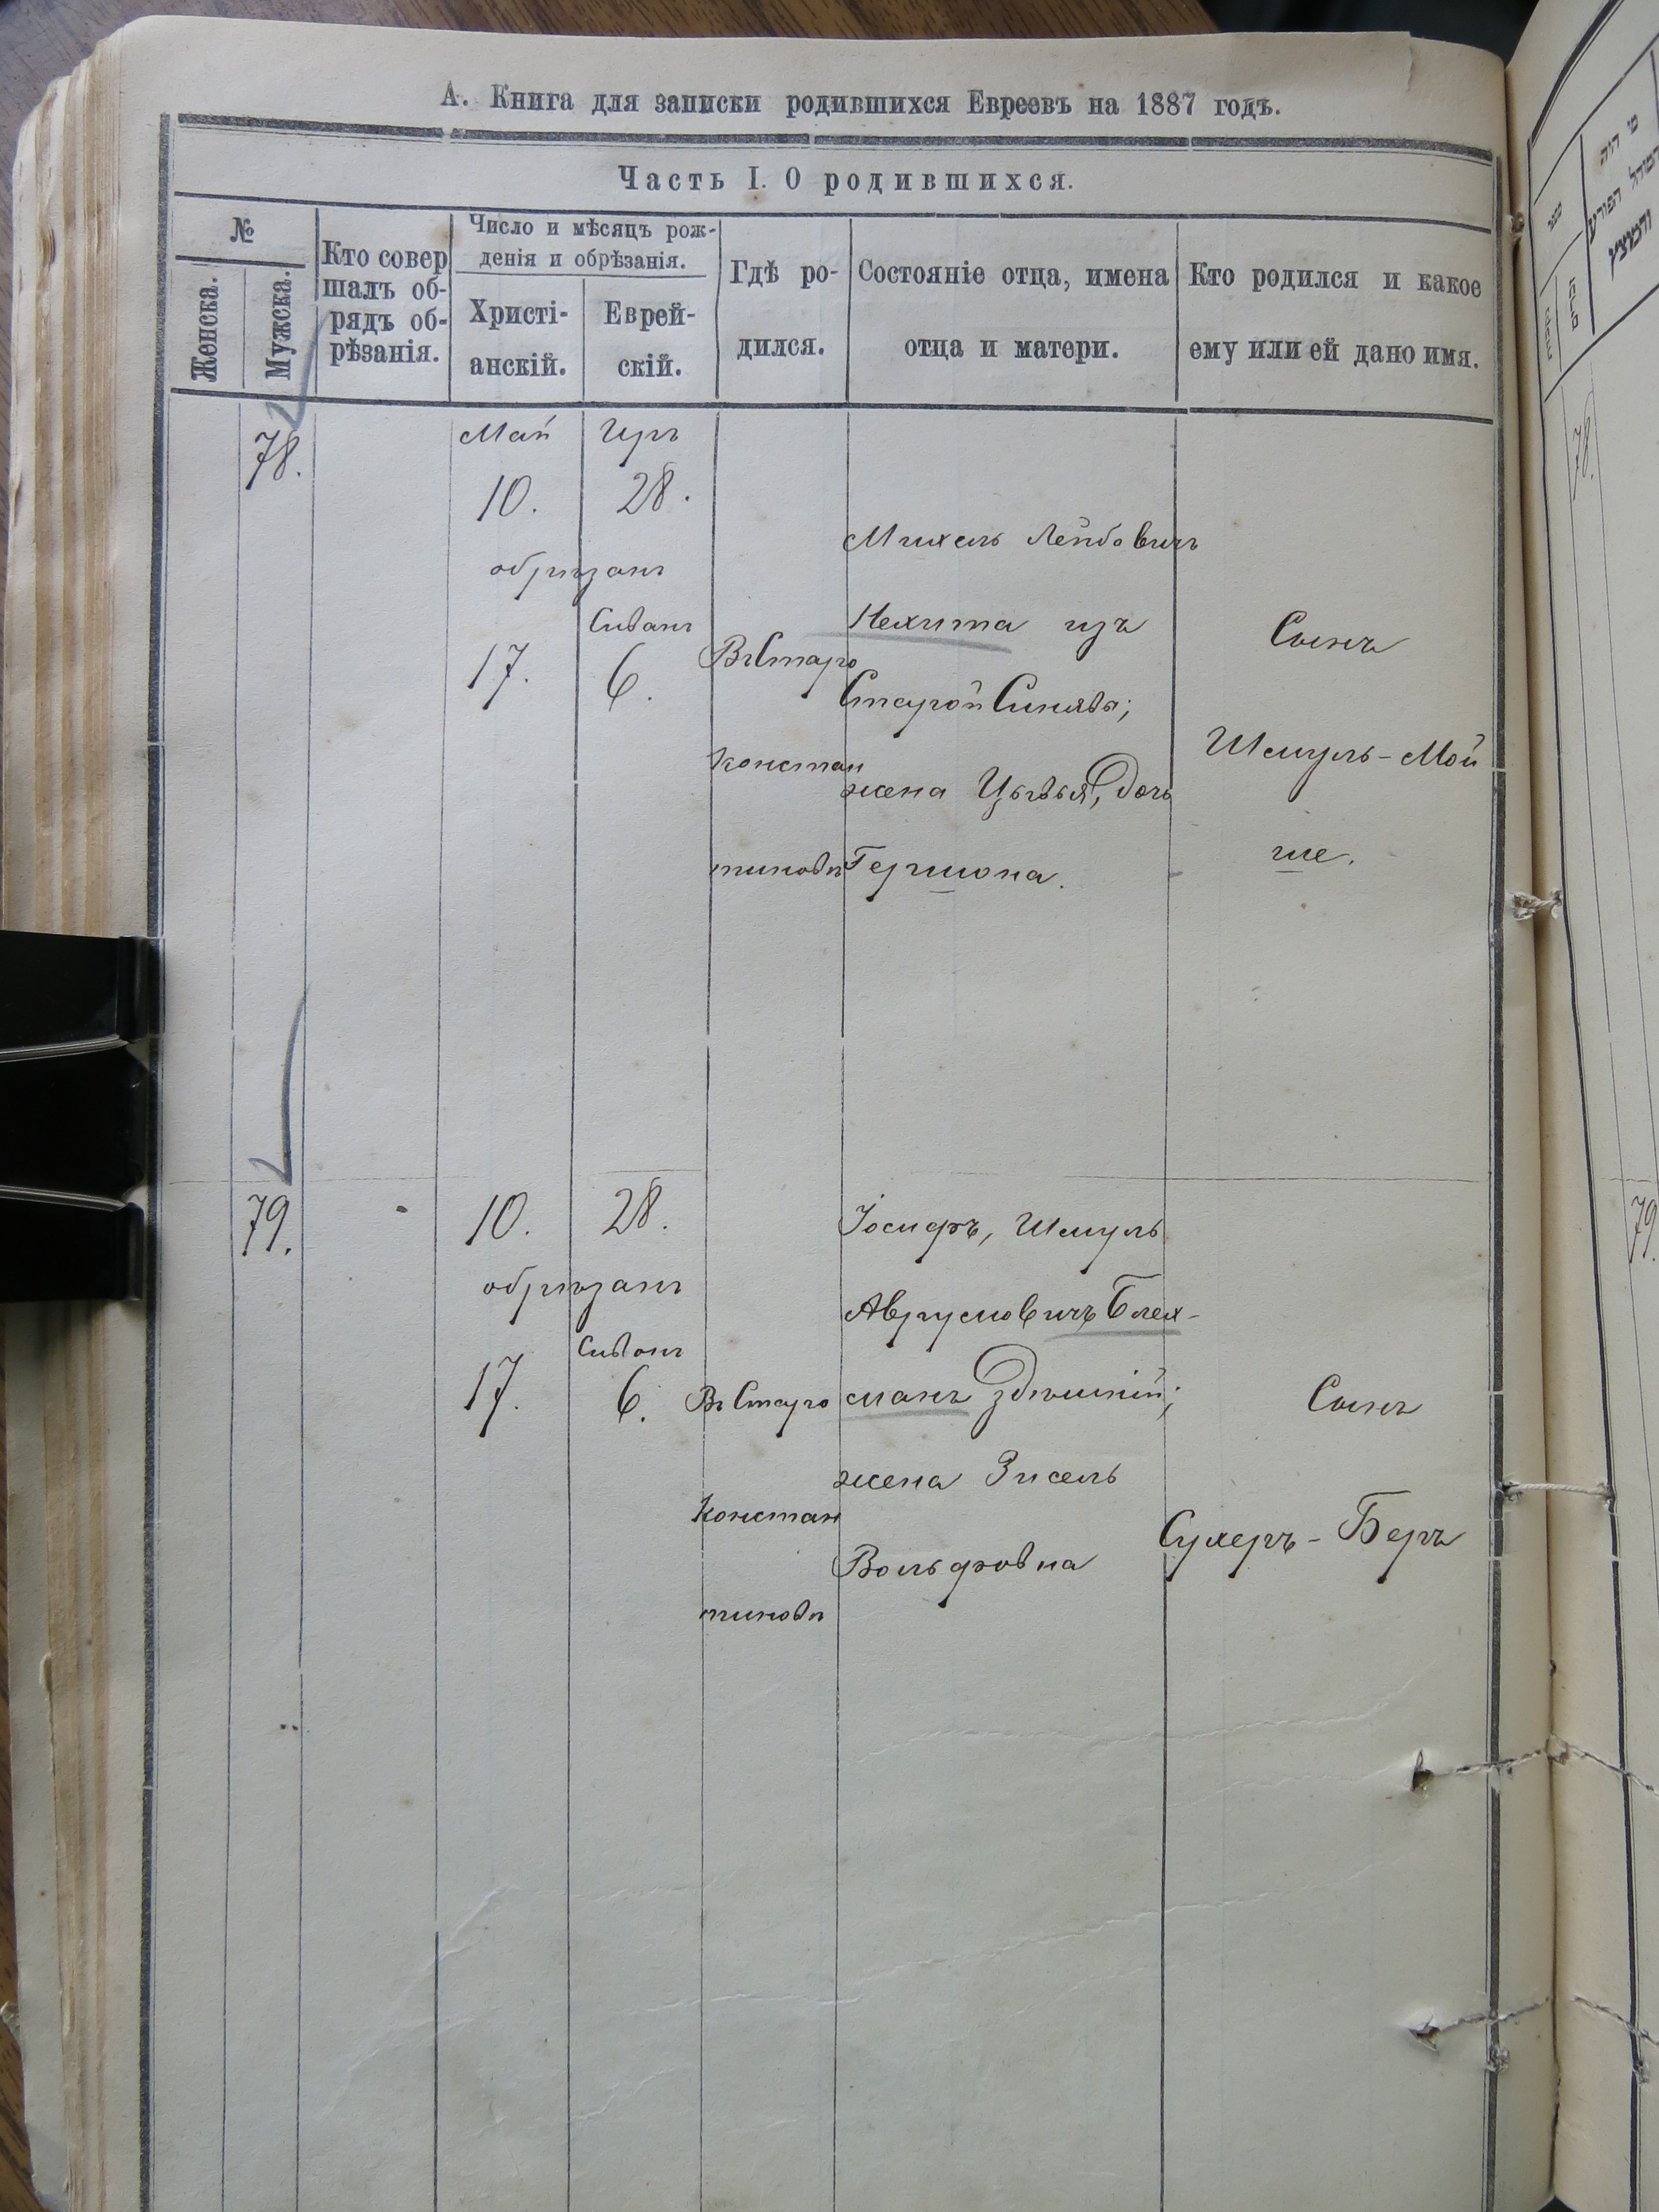 А. Книга для записки родившихся Евреевъ на 1887 годъ.
Часть I. О родившихся.
№
Женска.
Мужска.
Кто совер
шалъ об-
рядъ об-
рѣзанія.
Число и мѣсяцъ рож-
денія и обрѣзанія.
Христі-
анскій.
Еврей-
скій.
Гдѣ ро-
дился.
Состояніе отца, имена
отца и матери.
Кто родился и какое
ему или ей дано имя.
78.
Май
Иръ
10.
28.
обрѣзанъ
Сиванъ
17.
6.
Въ Старо
констан
тиновѣ
Михель Лейбовичъ
Нехита изъ
Старой Синявы;
жена Цывья, дочь
Гершона.
Сынъ
Шмуль-Мой
ше.
79.
10.
28.
обрѣзанъ
Сиванъ
17.
6.
Въ Старо
констан
тиновѣ
Іосифъ, Шмуль
Аврумовичъ Блех-
манъ здѣшній;
жена Зисель
Вольфовна
Сынъ
Сухеръ-Беръ
מי היה
78.
79.